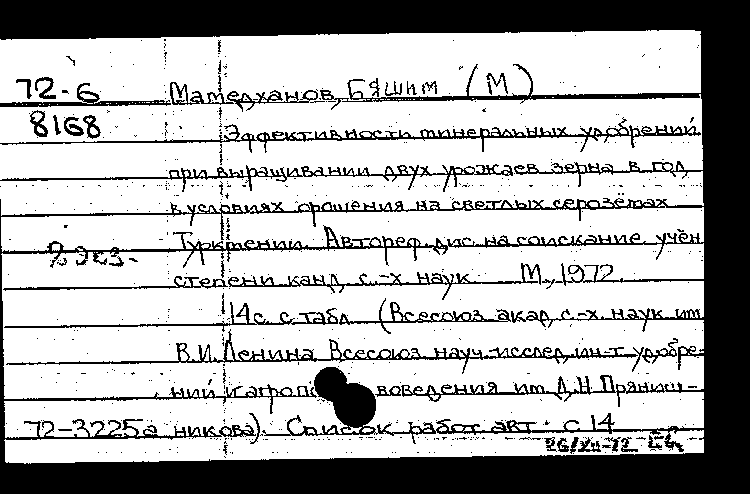 72-6 Мамедханов, Бяшим (М)
8168 Эффективность минеральных удобрений
при выращивании двух урожаев зерна в год
в условиях орошения на светлых серозёмах
2 экз. Туркмении. Автореф. дис. на соискание учён
степени канд. с.-х. наук М., 1972.
14 с. с табл. (Всесоюз акад. с.-х. наук им
В.И. Ленина. Всесоюз науч.-исслед. ин-т удобре-
ний и агропо воведения им. Д.Н Пряниш-
72-3225а никова). Список работ авт. с 14
26/XII-72